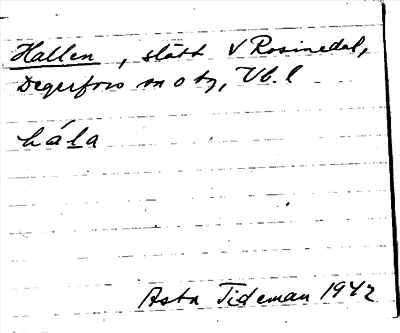 Hallen, slått V Rosinedal,
Degerfors sn o tg, Vb. l
hála
Asta Tideman 1942